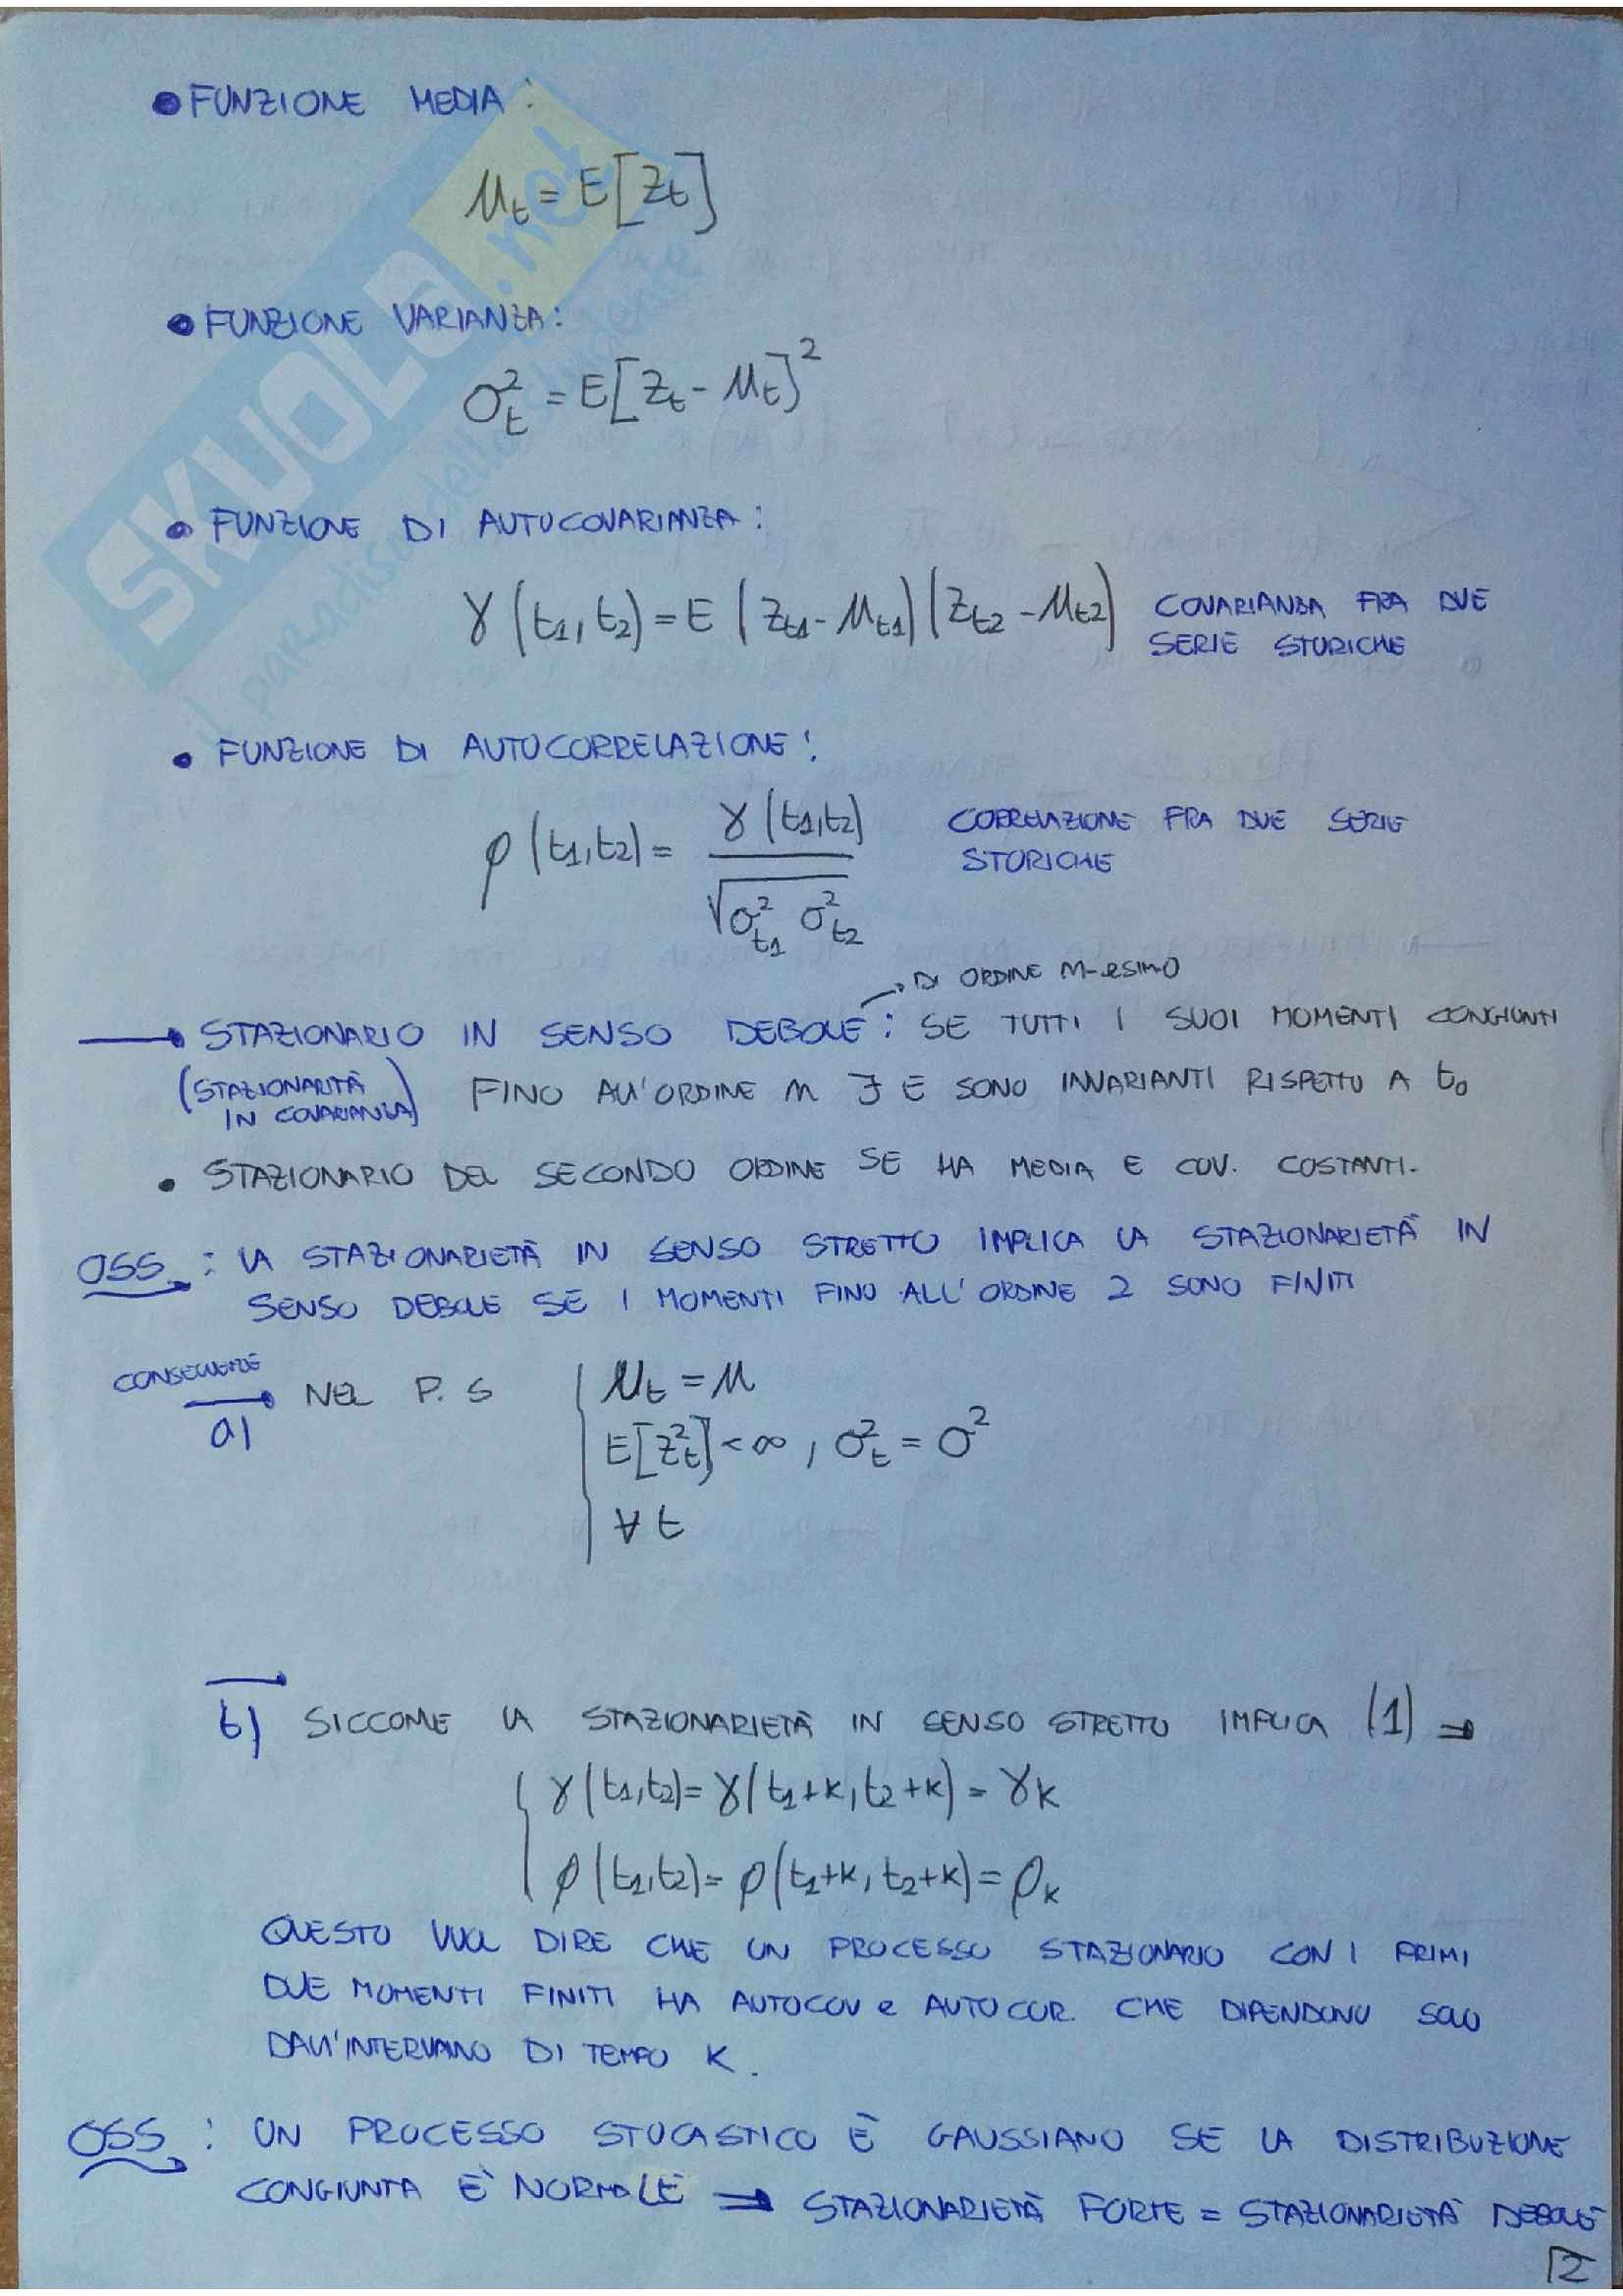 • FUNZIONE MEDIA:
μt = E[Zt]
• FUNZIONE VARIANZA:
σ²t = E[Zt - μt]²
• FUNZIONE DI AUTOCOVARIANZA:
γ(t1, t2) = E(Zt1 - μt1)(Zt2 - μt2) COVARIANZA FRA DUE
SERIE STORICHE
• FUNZIONE DI AUTOCORRELAZIONE:
ρ(t1,t2) = γ(t1,t2) / √σ²t1 σ²t2 CORRELAZIONE FRA DUE SERIE
STORICHE
→ DI ORDINE M-esimo
→ STAZIONARIO IN SENSO DEBOLE: SE TUTTI I SUOI MOMENTI CONGIUNTI
(STAZIONARITÀ IN COVARIANZA) FINO ALL'ORDINE M ∃ E SONO INVARIANTI RISPETTO A t0
• STAZIONARIO DEL SECONDO ORDINE SE HA MEDIA E COV. COSTANTI.
OSS: LA STAZIONARIETÀ IN SENSO STRETTO IMPLICA LA STAZIONARIETÀ IN
SENSO DEBOLE SE I MOMENTI FINO ALL'ORDINE 2 SONO FINITI
CONSEGUENZE
→ a) NEL P. S { μt = μ
E[Z²t] < ∞, σ²t = σ²
∀ t
→ b) SICCOME LA STAZIONARIETÀ IN SENSO STRETTO IMPLICA (1) ⇒
{ γ(t1,t2) = γ(t1+k, t2+k) = γk
ρ(t1,t2) = ρ(t1+k, t2+k) = ρk
QUESTO VUOL DIRE CHE UN PROCESSO STAZIONARIO CON I PRIMI
DUE MOMENTI FINITI HA AUTOCOV e AUTOCOR. CHE DIPENDONO SOLO
DALL'INTERVALLO DI TEMPO K.
OSS: UN PROCESSO STOCASTICO È GAUSSIANO SE LA DISTRIBUZIONE
CONGIUNTA È NORMALE ⇒ STAZIONARIETÀ FORTE = STAZIONARIETÀ DEBOLE
2
SKUOLA.net
il paradiso dello studente